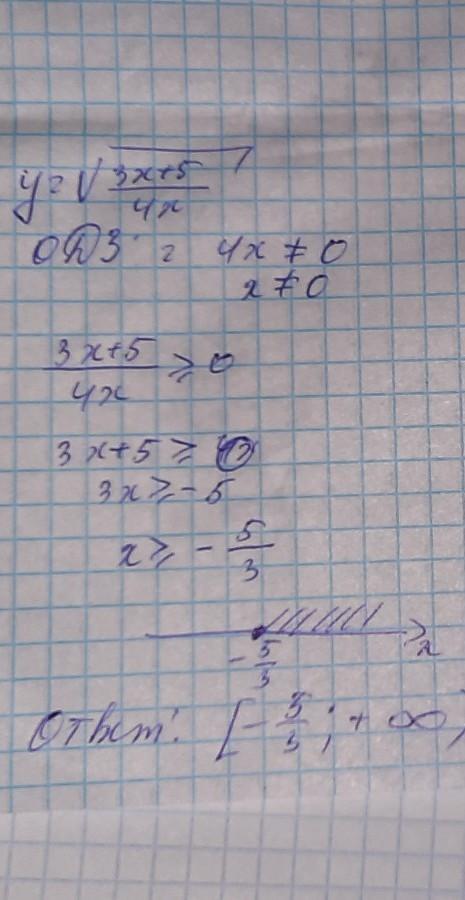 y = √(3x+5 / 4x)
ОДЗ : 4x ≠ 0
x ≠ 0
3x+5 / 4x ≥ 0
3x+5 ≥ 0
3x ≥ -5
x ≥ - 5/3
- 5/3 x
Ответ: [- 5/3 ; + ∞)